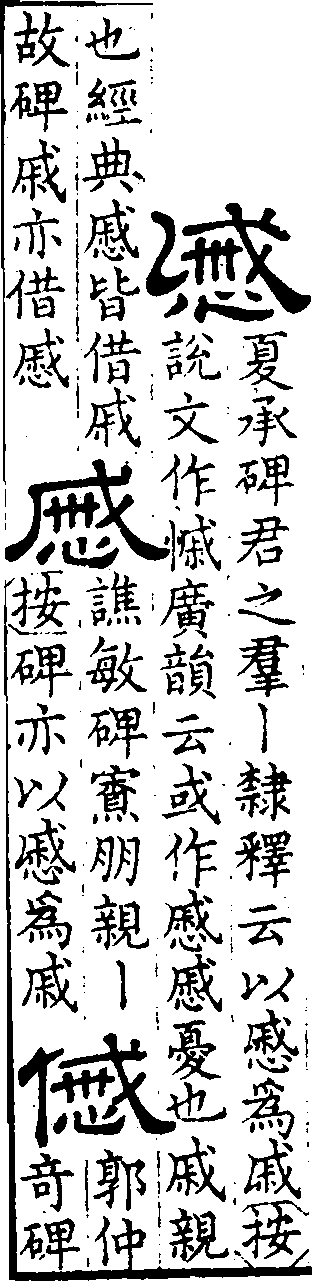 慼
夏承碑君之羣丨隸釋云以慼爲戚按
說文作慽廣韻云或作慼慼憂也戚親
也經典慼皆借戚
故碑戚亦借慼
慼
譙敏碑寮朋親丨
按碑亦以慼爲戚
慼
郭仲
奇碑